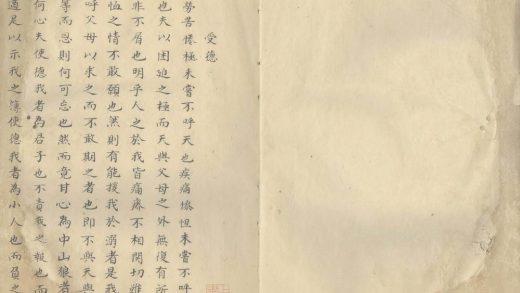 受德
勞苦惓極未嘗不呼天也疾痛慘怛未嘗不呼
也夫以困迫之極而天與父母之外無復有所
非不屑也明乎人之於我皆痛癢不相關切雖
恤之情不敢顧也然則有能援我於溺者是我
呼父母以求之而不敢期之者也即不與天與
等而恩則何可忘也然而竟甘心為中山狼者
何心夫使德我者為君子也不責我之報也而
適足以示我之薄使德我者為小人也而負之